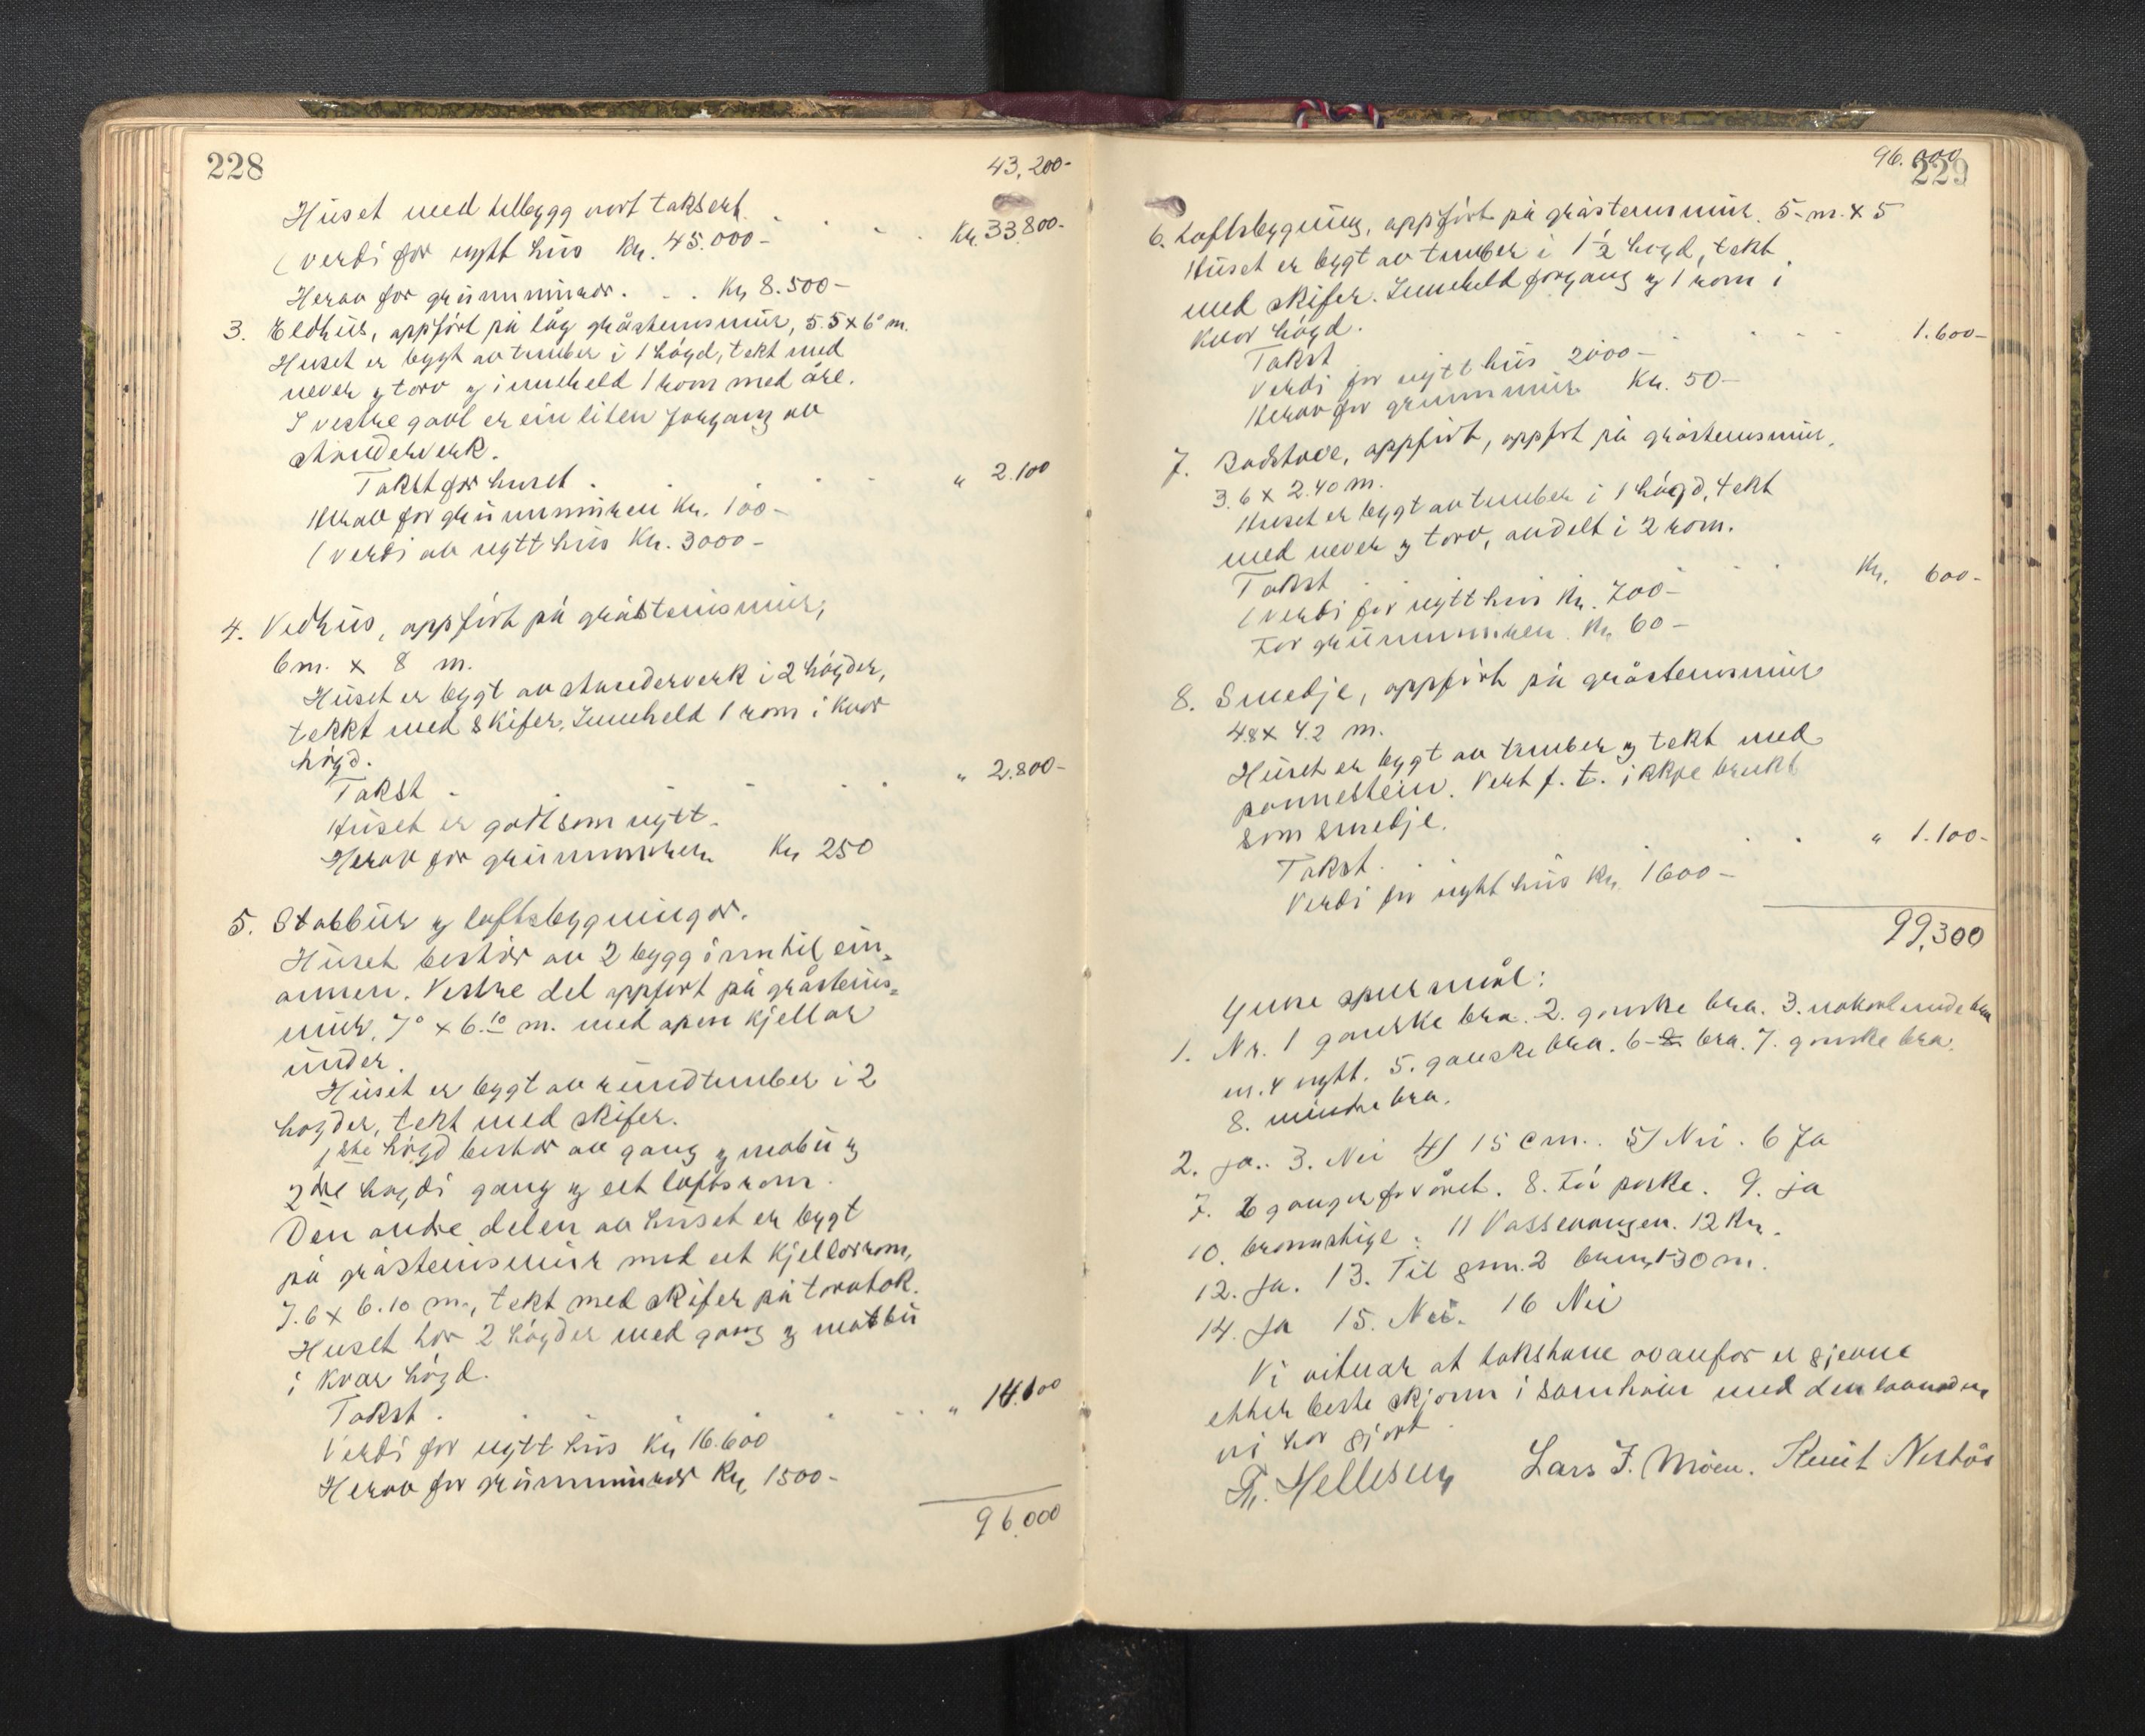 228
43,200-
Huset med tilbygg vort taksert . . . . Kr. 33.800-
(verdi for nytt hus Kr. 45.000-
Herav for grunnmurar. . . Kr 8.500-
3. Eldhus, oppført på låg gråsteinsmur, 5.5 x 6° m.
Huset er bygt av timber i 1 høgd, tekt med
never og torv og inneheld 1 rom med åre.
I vestre gavl er ein liten forgang av
stenderverk.
Takst for huset . . . " 2.100
Herav for grunnmuren Kr. 100-
(verdi av nytt hus Kr. 3000-
4. Vedhus, oppført på gråsteinsmur,
6m. x 8 m.
Huset er bygt av stenderverk i 2 høgder,
tekkt med skifer. Inneheld 1 rom i kvar
høgd.
Takst . . . . " 2.800-
Huset er godt som nytt.
Herav for grunnmuren Kr 250
5. Stabbur og loftsbygningar.
Huset består av 2 bygg inn til ein-
annen. Vestre del oppført på gråsteins-
mur, 7° x 6.10 m. med open kjellar
under.
Huset er bygt av rundtimber i 2
høgder, tekt med skifer.
1ste høgd består av gang og matbu og
2dre høgdi gang og eit loftsrom.
Den andre delen av huset er bygt
på gråsteinsmur med eit kjellarrom,
7.6 x 6.10 m., tekt med skifer på torvtak.
Huset har 2 høgder med gang og matbu
i kvar høgd.
Takst . . . . . . " 14.100
Verdi for nytt hus Kr 16.600
Herav for grunnmurar Kr. 1500-
96.000
96.000
229
6. Loftsbygning, oppført på gråsteinsmur. 5-m. x 5
Huset er bygt av timber i 1½ høgd, tekt
med skifer. Inneheld forgang og 1 rom i
kvar høgd.
Takst . . . . 1.600-
Verdi for nytt hus 2000-
Herav for grunnmur Kr. 50-
7. Badstove, oppført, oppført på gråsteinsmur,
3.6 x 2.40 m.
Huset er bygt av timber i 1 høgd, tekt
med never og torv, avdelt i 2 rom.
Takst . . . . Kr. 600-
(verdi for nytt hus Kr. 700-
For grunnmuren. Kr. 60-
8. Smedje, oppført på gråsteinsmur
4.8 x 4.2 m.
Huset er bygt av timber og tekt med
pannestein. Vert f. t. ikkje brukt
som smedje.
Takst. . . . . " 1.100-
Verdi for nytt hus Kr. 1600-
99,300
Ymse spursmål:
1. Nr. 1 ganske bra. 2. ganske bra. 3. nokorlunde bra
nr. 4 nytt. 5. ganske bra. 6 bra. 7. ganske bra.
8. mindre bra.
2. Ja. 3. Nei 4) 15 cm. . 5) Nei . 6 Ja
7. 2 ganger for året. 8. For paske. 9. ja
10. brannstige . 11 Vassevangen. 12 Km.
12. Ja. 13. Til gnr. 2 brnr. 1-30 m.
14. Ja 15. Nei. 16 Nei
Vi vitnar at takstane ovanfor er gjevne
etter beste skjønn i samhøve med den
vi har gjort.
Lars J. Møen. Knut Nestås